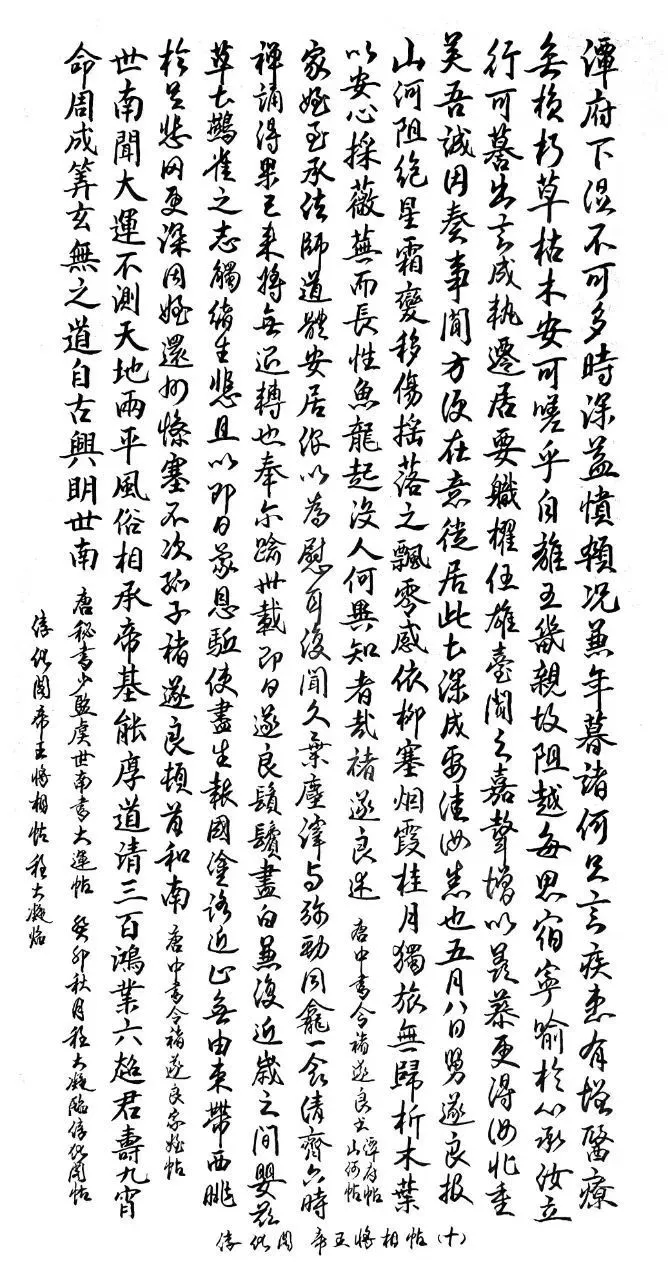 潭府下湿不可多時深益憒頓况兼年暮諸何足言疾患有增醫療
無損朽草枯木安可嗟乎自離王畿親故阻越每思宿寧喻於心承汝立
行可慕出言成執遷居要職櫂任雄臺聞之嘉聲增以景慕更得汝北重
美吾誠因奏事聞方便在意從居此七深成要佳汝悉也五月八日舅遂良报
山河阻絶星霜變移傷摇落之飄零感依柳塞烟霞桂月獨旅無歸折木葉
以安心採薇蕪而長性魚龍起没人何異知者哉褚遂良述 唐中書令褚遂良書 潭府帖 山河帖
家姪至承法師道體安居深以為慰耳復聞久棄塵滓与弥勒同龕一食清齊六時
禅誦得果已来將無退轉也奉尓踰卅載即日遂良鬚鬢盡白兼復近歲之間嬰兹
草土鷰雀之志觸緒生悲且以即日蒙恩駈使盡生報國塗路近止無由束帶西眺
於邑悲罔更深因姪還州慘塞不次孤子褚遂良頓首和南 唐中書令褚遂良家姪帖
世南聞大運不測天地兩平風俗相承帝基能厚道清三百鴻業六超君壽九霄
命周成筭玄無之道自古興明世南 唐秘書少監虞世南書大運帖 癸卯秋月程大凝臨淳化閣帖
淳化閣帝王將相帖程大凝焰
淳化閣 帝王將相帖(十)